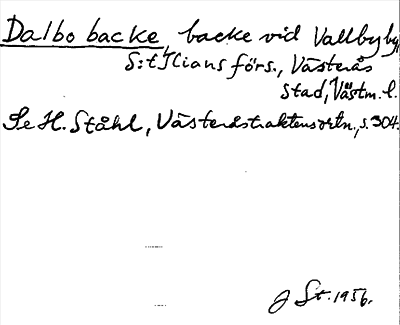 Dalbo backe, backe vid Vallby by,
S:t Ilians förs., Västerås
stad, Västm. l.
Se H. Ståhl, Västeråstraktens ortn., s. 304.
J St. 1956.